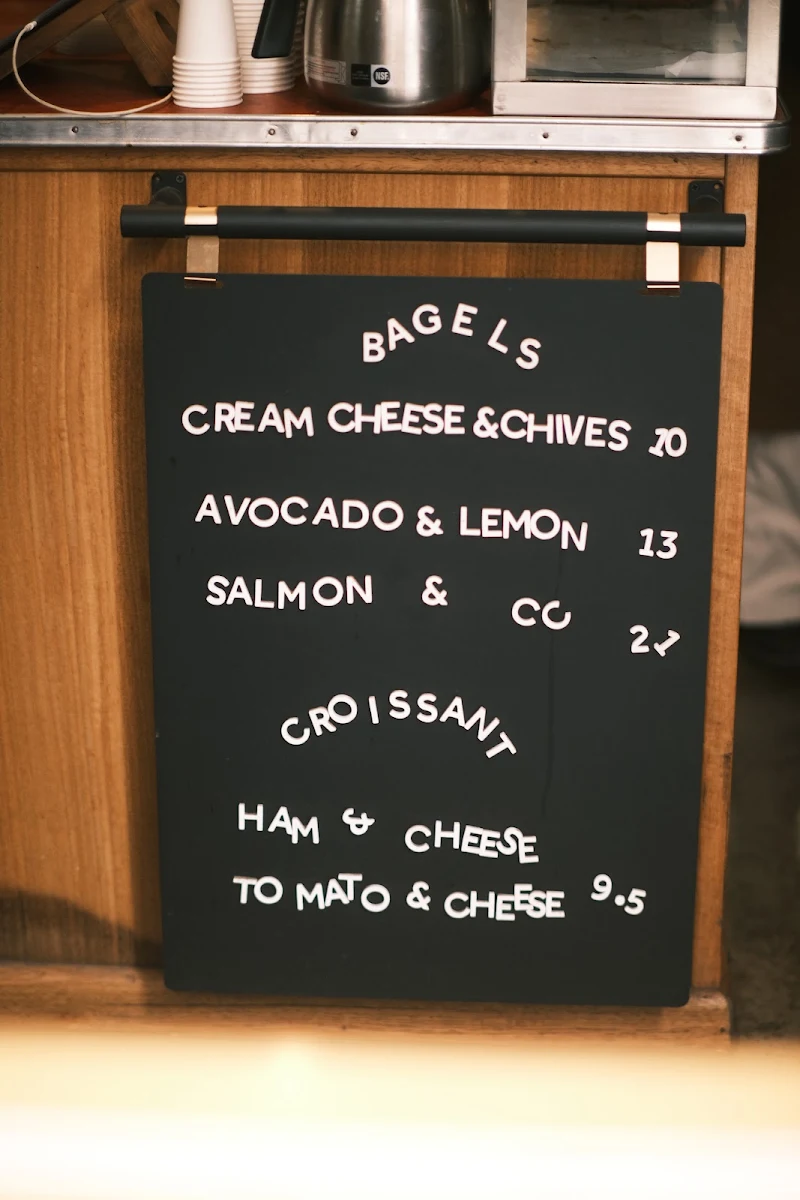 NSF
BAGELS
CREAM CHEESE & CHIVES 10
AVOCADO & LEMON 13
SALMON & CO 21
CROISSANT
HAM & CHEESE
TOMATO & CHEESE 9.5